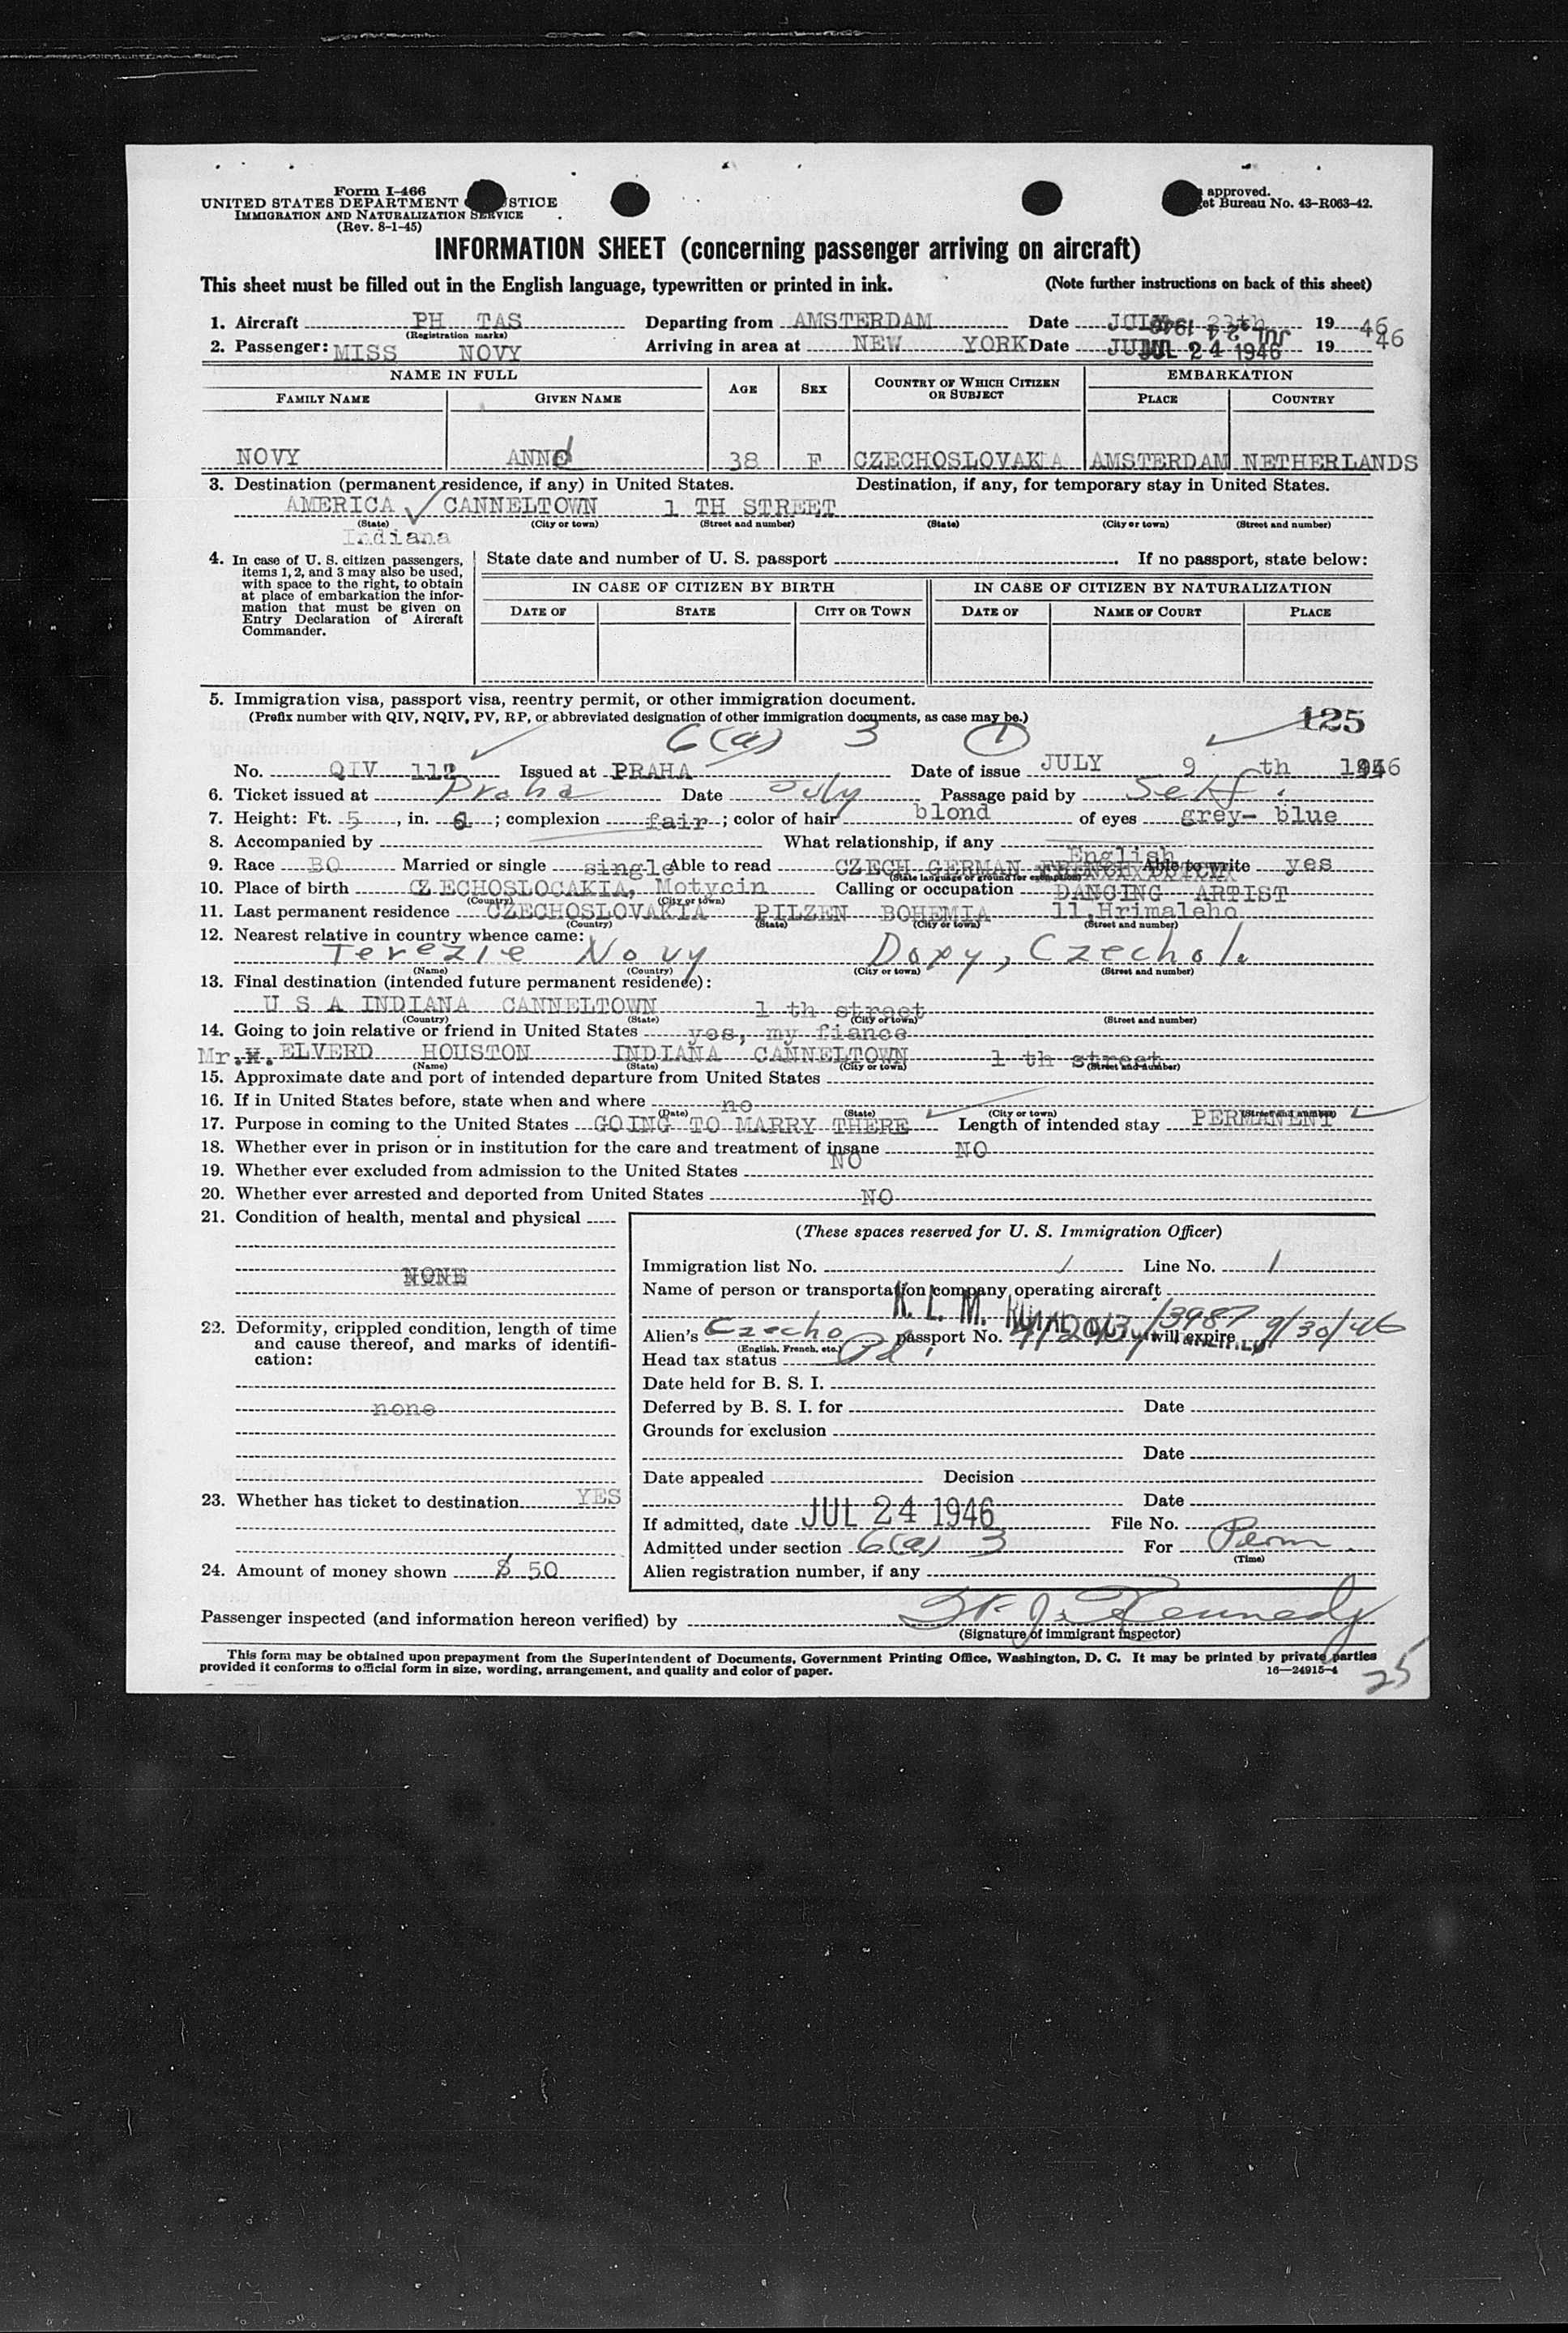 Form I-466
UNITED STATES DEPARTMENT STICE
IMMIGRATION AND NATURALIZATION SERVICE
(Rev. 8-1-45)
approved.
et Bureau No. 43-R063-42.
INFORMATION SHEET (concerning passenger arriving on aircraft)
This sheet must be filled out in the English language, typewritten or printed in ink. (Note further instructions on back of this sheet)
1. Aircraft PH TAS Departing from AMSTERDAM Date 23th 19 46
(Registration marks) JUL 24 1946
2. Passenger: MISS NOVY Arriving in area at NEW YORK Date JUL 24 1946 19 46
NAME IN FULL AGE SEX COUNTRY OF WHICH CITIZEN OR SUBJECT EMBARKATION
FAMILY NAME GIVEN NAME PLACE COUNTRY
NOVY 38 F CZECHOSLOVAKIA AMSTERDAM NETHERLANDS
3. Destination (permanent residence, if any) in United States. Destination, if any, for temporary stay in United States.
AMERICA CANNELTOWN 1 TH STREET
(State) (City or town) (Street and number) (State) (City or town) (Street and number)
Indiana
4. In case of U. S. citizen passengers, items 1, 2, and 3 may also be used, with space to the right, to obtain at place of embarkation the information that must be given on Entry Declaration of Aircraft Commander.
State date and number of U. S. passport . If no passport, state below:
IN CASE OF CITIZEN BY BIRTH IN CASE OF CITIZEN BY NATURALIZATION
DATE OF STATE CITY OR TOWN DATE OF NAME OF COURT PLACE
5. Immigration visa, passport visa, reentry permit, or other immigration document.
(Prefix number with QIV, NQIV, PV, RP, or abbreviated designation of other immigration documents, as case may be.) 125
6(a) 3 1
No. QIV 112 Issued at PRAHA Date of issue JULY 9 th 1946
6. Ticket issued at Praha Date July Passage paid by Self.
7. Height: Ft. 5, in. ; complexion fair ; color of hair blond of eyes grey- blue
8. Accompanied by What relationship, if any
English
9. Race BO Married or single single Able to read CZECH GERMAN Able to write yes
(State language or ground for exemption)
10. Place of birth CZECHOSLOCAKIA, Motycin Calling or occupation DANCING ARTIST
(Country) (City or town)
11. Last permanent residence CZECHOSLOVAKIA PILZEN BOHEMIA 11, Hrimaleho
(Country) (State) (City or town) (Street and number)
12. Nearest relative in country whence came:
Terezie Novy Dopy, Czechol.
(Name) (Country) (City or town) (Street and number)
13. Final destination (intended future permanent residence):
U S A INDIANA CANNELTOWN 1 th street
(Country) (State) (City or town) (Street and number)
14. Going to join relative or friend in United States yes, my fiance
Mr. ELVERD HOUSTON INDIANA CANNELTOWN 1 th street
(Name) (State) (City or town) (Street and number)
15. Approximate date and port of intended departure from United States
16. If in United States before, state when and where no
(Date) (State) (City or town) (Street and number)
17. Purpose in coming to the United States GOING TO MARRY THERE Length of intended stay PERMANENT
18. Whether ever in prison or in institution for the care and treatment of insane NO
19. Whether ever excluded from admission to the United States NO
20. Whether ever arrested and deported from United States NO
21. Condition of health, mental and physical
NONE
22. Deformity, crippled condition, length of time and cause thereof, and marks of identification:
none
23. Whether has ticket to destination YES
24. Amount of money shown $ 50
(These spaces reserved for U. S. Immigration Officer)
Immigration list No. 1 Line No. 1
Name of person or transportation company operating aircraft
K. L. M.
Alien's Czecho passport No. /3987 will expire 9/30/46
(English, French, etc.)
Head tax status Pd.
Date held for B. S. I.
Deferred by B. S. I. for Date
Grounds for exclusion
Date
Date appealed Decision
Date
If admitted, date JUL 24 1946 File No.
Admitted under section 6(a) 3 For Perm.
(Time)
Alien registration number, if any
Passenger inspected (and information hereon verified) by J. Kennedy
(Signature of immigrant inspector)
This form may be obtained upon prepayment from the Superintendent of Documents, Government Printing Office, Washington, D. C. It may be printed by private parties
provided it conforms to official form in size, wording, arrangement, and quality and color of paper. 16—24915-4
25